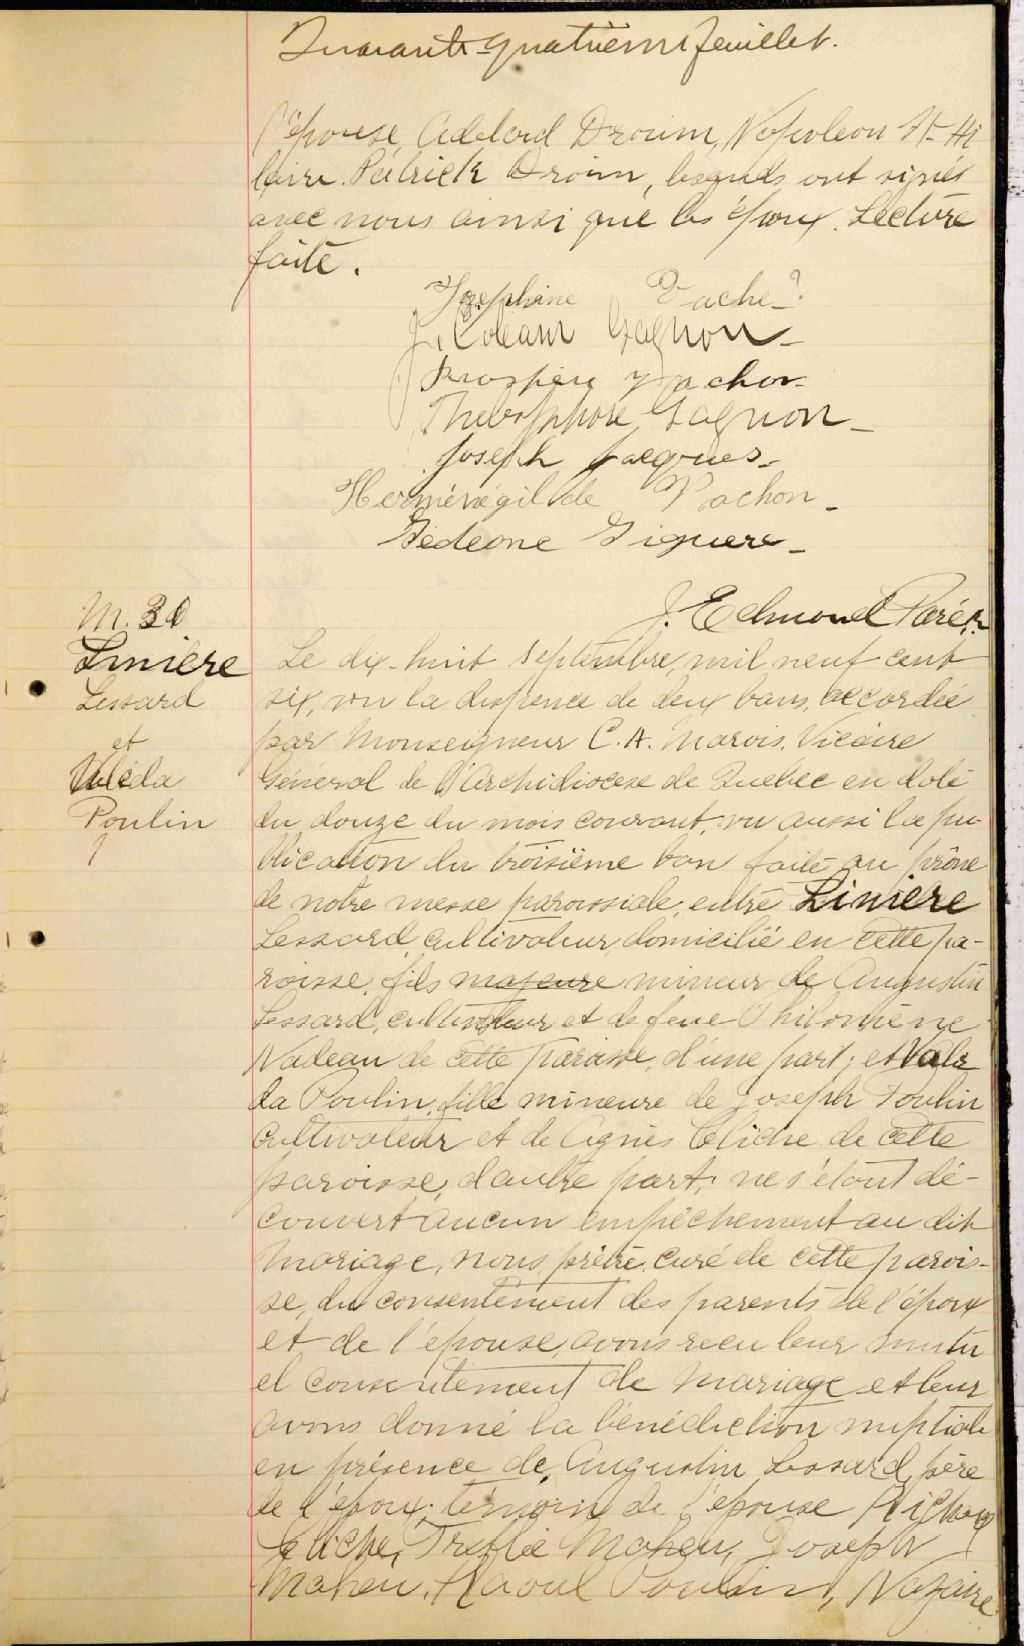 Quarante-quatrième feuillet.
l'épouse, Adelard Drouin, Napoleon St-Hi
laire. Patrick Drouin, lesquels ont signés
avec nous ainsi que les époux. Lecture
faite.
Josephine Vachon
J. Gagnon
Prospère Vachon
Thelesphore Gagnon
Joseph Jacques
Herménégilde Vachon
Gédéone Giguere
J. Edmond Paré
M. 30
Linière
Lessard
et
Valéda
Poulin
Le dix-huit septembre, mil neuf cent
six, vu la dispense de deux bans, accordée
par Monseigneur C. A. Marois, Vicaire
Général de l'Archidiocèse de Québec en date
du douze du mois courant, vu aussi la pu
blication du troisième ban faite au prône
de notre messe paroissiale, entre Linière
Lessard, cultivateur, domicilié en cette pa-
roisse, fils majeure mineur de Augustin
Lessard, cultivateur et de feue Philomène
Nadeau de cette paroisse, d'une part; et Valé
da Poulin, fille mineure de Joseph Poulin
cultivateur et de Agnès Cliche de cette
paroisse, d'autre part, ne s'étant dé-
couvert aucun empêchement au dit
mariage, nous, prêtre, curé de cette parois-
se, du consentement des parents de l'époux
et de l'épouse, avons reçu leur mutu
el consentement de mariage et leur
avons donné la bénédiction nuptiale
en présence de, Augustin Lessard, père
de l'époux; témoin de l'épouse
Cliche, Trefflé Maheu, Joseph
Maheu, Raoul Poulin, Nazaire